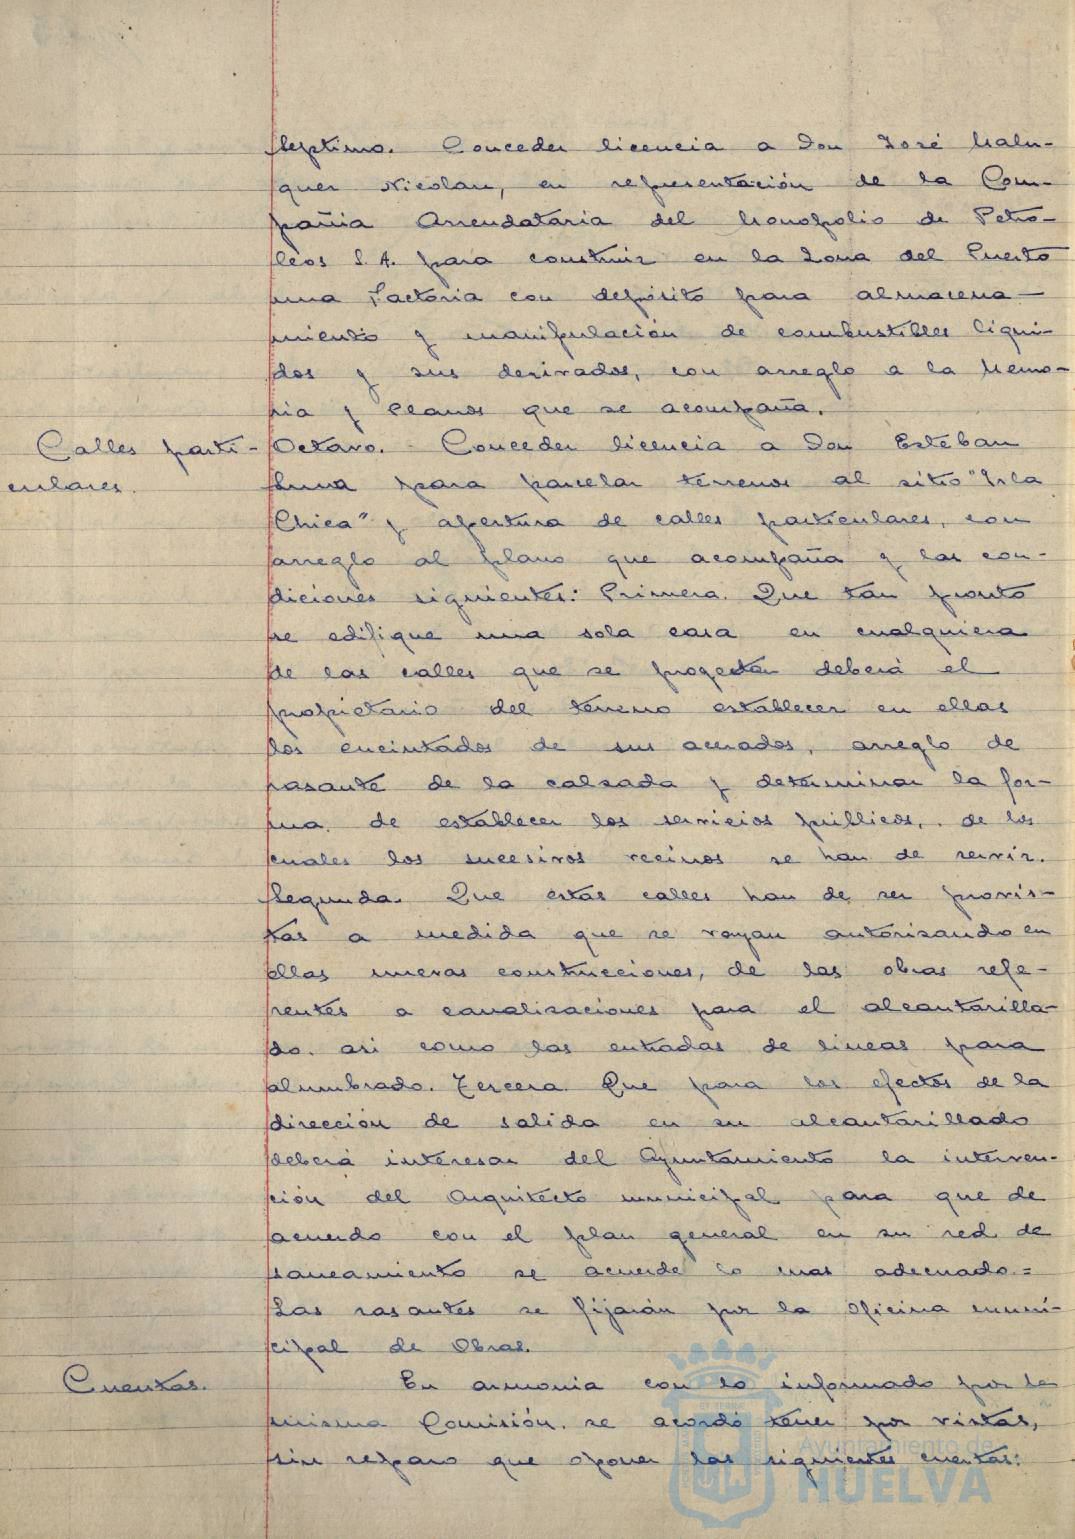 Septimo. Conceder licencia a Don José Malu-
quer Nicolau, en representación de la Com-
pañia Arrendataria del Monopolio de Petro-
leos S. A. para construir en la Zona del Puerto
una Factoria con depósito para almacena-
miento y manipulación de combustibles liqui-
dos y sus derivados, con arreglo a la Memo-
ria y Planos que se acompaña.
Calles parti-
culares.
Octavo. - Conceder licencia a Don Esteban
Luna para parcelar terrenos al sitio "Isla
Chica" y apertura de calles particulares, con
arreglo al plano que acompaña y las con-
diciones siguientes: Primera. Que tan pronto
se edifique una sola casa en cualquiera
de las calles que se proyectan deberá el
propietario del terreno establecer en ellas
los encintados de sus acerados, arreglo de
rasante de la calzada y determinar la for-
ma de establecer los servicios públicos, de los
cuales los sucesivos vecinos se han de servir.
Segunda. Que estas calles han de ser provis-
tas a medida que se vayan autorizando en
ellas nuevas construcciones, de las obras refe-
rentes a canalizaciones para el alcantarilla-
do. asi como las entradas de lineas para
alumbrado. Tercera. Que para los efectos de la
dirección de salida en su alcantarillado
deberá interesar del Ayuntamiento la interven-
ción del Arquitecto municipal para que de
acuerdo con el plan general en su red de
saneamiento se acuerde lo mas adecuado.=
Las rasantes se fijarán por la Oficina muni-
cipal de Obras.
Cuentas.
En armonia con lo informado por la
misma Comisión. se acordó tener por vistas,
sin reparo que oponer las siguientes cuentas:
Ayuntamiento de
HUELVA